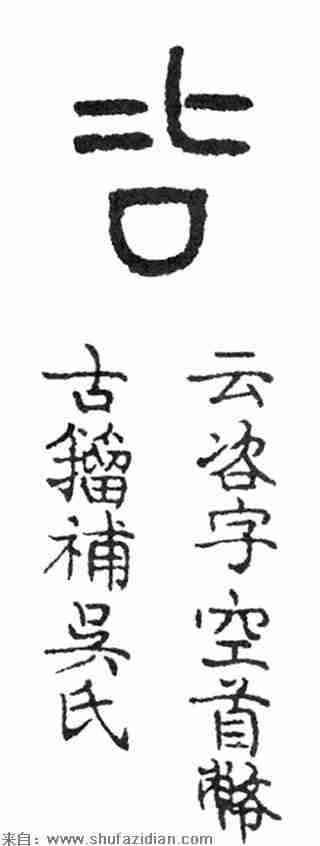 古籕補吳氏
云咨字空首幣
来自：www.shufazidian.com